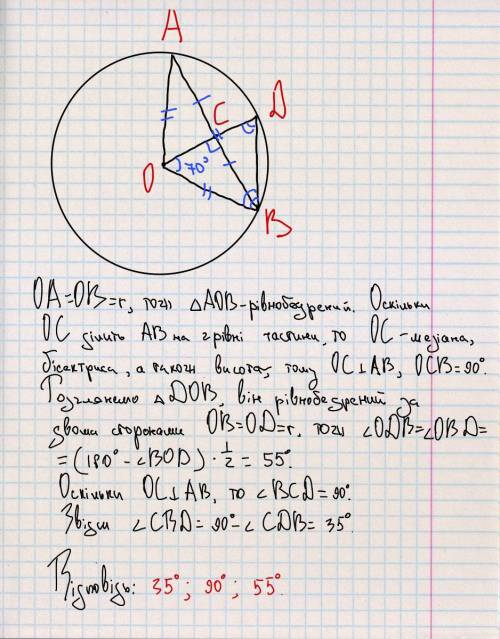 A
C
D
O
70°
B
OA=OB=r, тоді △AOB-рівнобедрений. Оскільки
OC ділить AB на 2 рівні частини, то OC-медіана,
бісектриса, а також висота, тому OC⊥AB, OCB=90°.
Розглянемо △DOB, він рівнобедрений за
двома сторонами OB=OD=r, тоді ∠ODB=∠OBD=
=(180°-∠BOD)·1/2=55°.
Оскільки OC⊥AB, то ∠BCD=90°.
Звідси ∠CBD=90°-∠CDB=35°.
Відповідь: 35°; 90°; 55°.